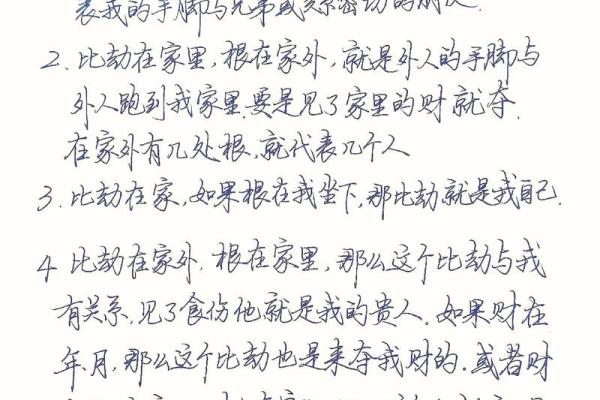 表我的手脚与兄弟或关系密切的朋友.
2. 比劫在家里,根在家外,就是外人的手脚与
外人跑到我家里.要是见了家里的财就夺.
在家外有几处根,就代表几个人
3. 比劫在家,如果根在我坐下,那比劫就是我自己.
4 比劫在家外,根在家里,那么这个比劫与我
有关系,见了食伤他就是我的贵人.如果财在
年.月,那么这个比劫也是来夺我财的.或者财